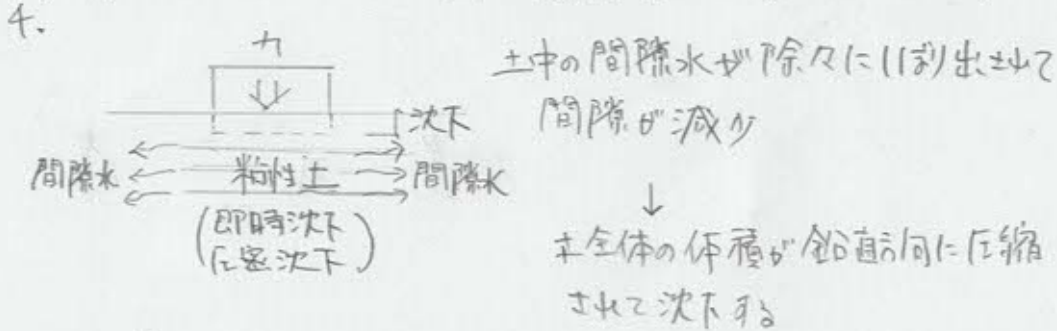 4.
力
沈下
間隙水 粘性土 間隙水
(即時沈下
圧密沈下)
土中の間隙水が除々にしぼり出されて
間隙が減少
↓
土全体の体積が鉛直方向に圧縮
されて沈下する